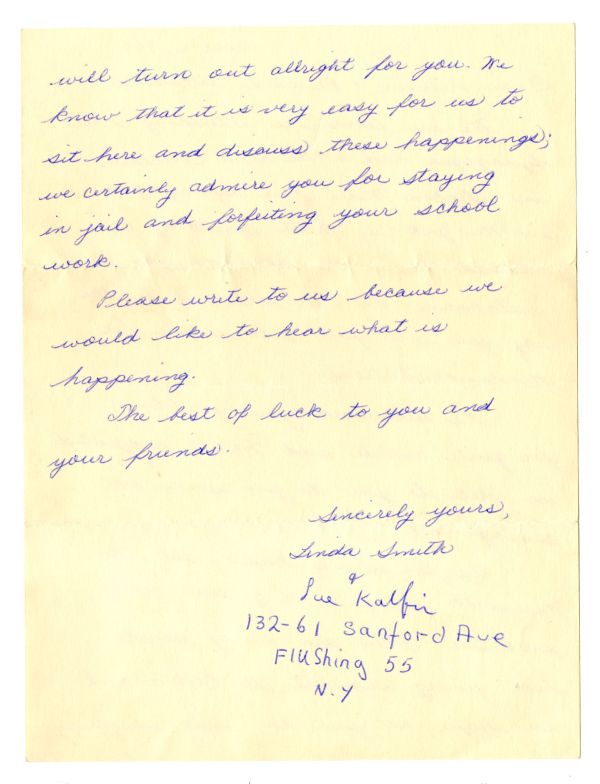 will turn out allright for you. We
know that it is very easy for us to
sit here and discuss these happenings;
we certainly admire you for staying
in jail and forfeiting your school
work.
Please write to us because we
would like to hear what is
happening.
The best of luck to you and
your friends.
Sincerely yours,
Linda Smith
&
Sue
132-61 Sanford Ave
Flushing 55
N.Y